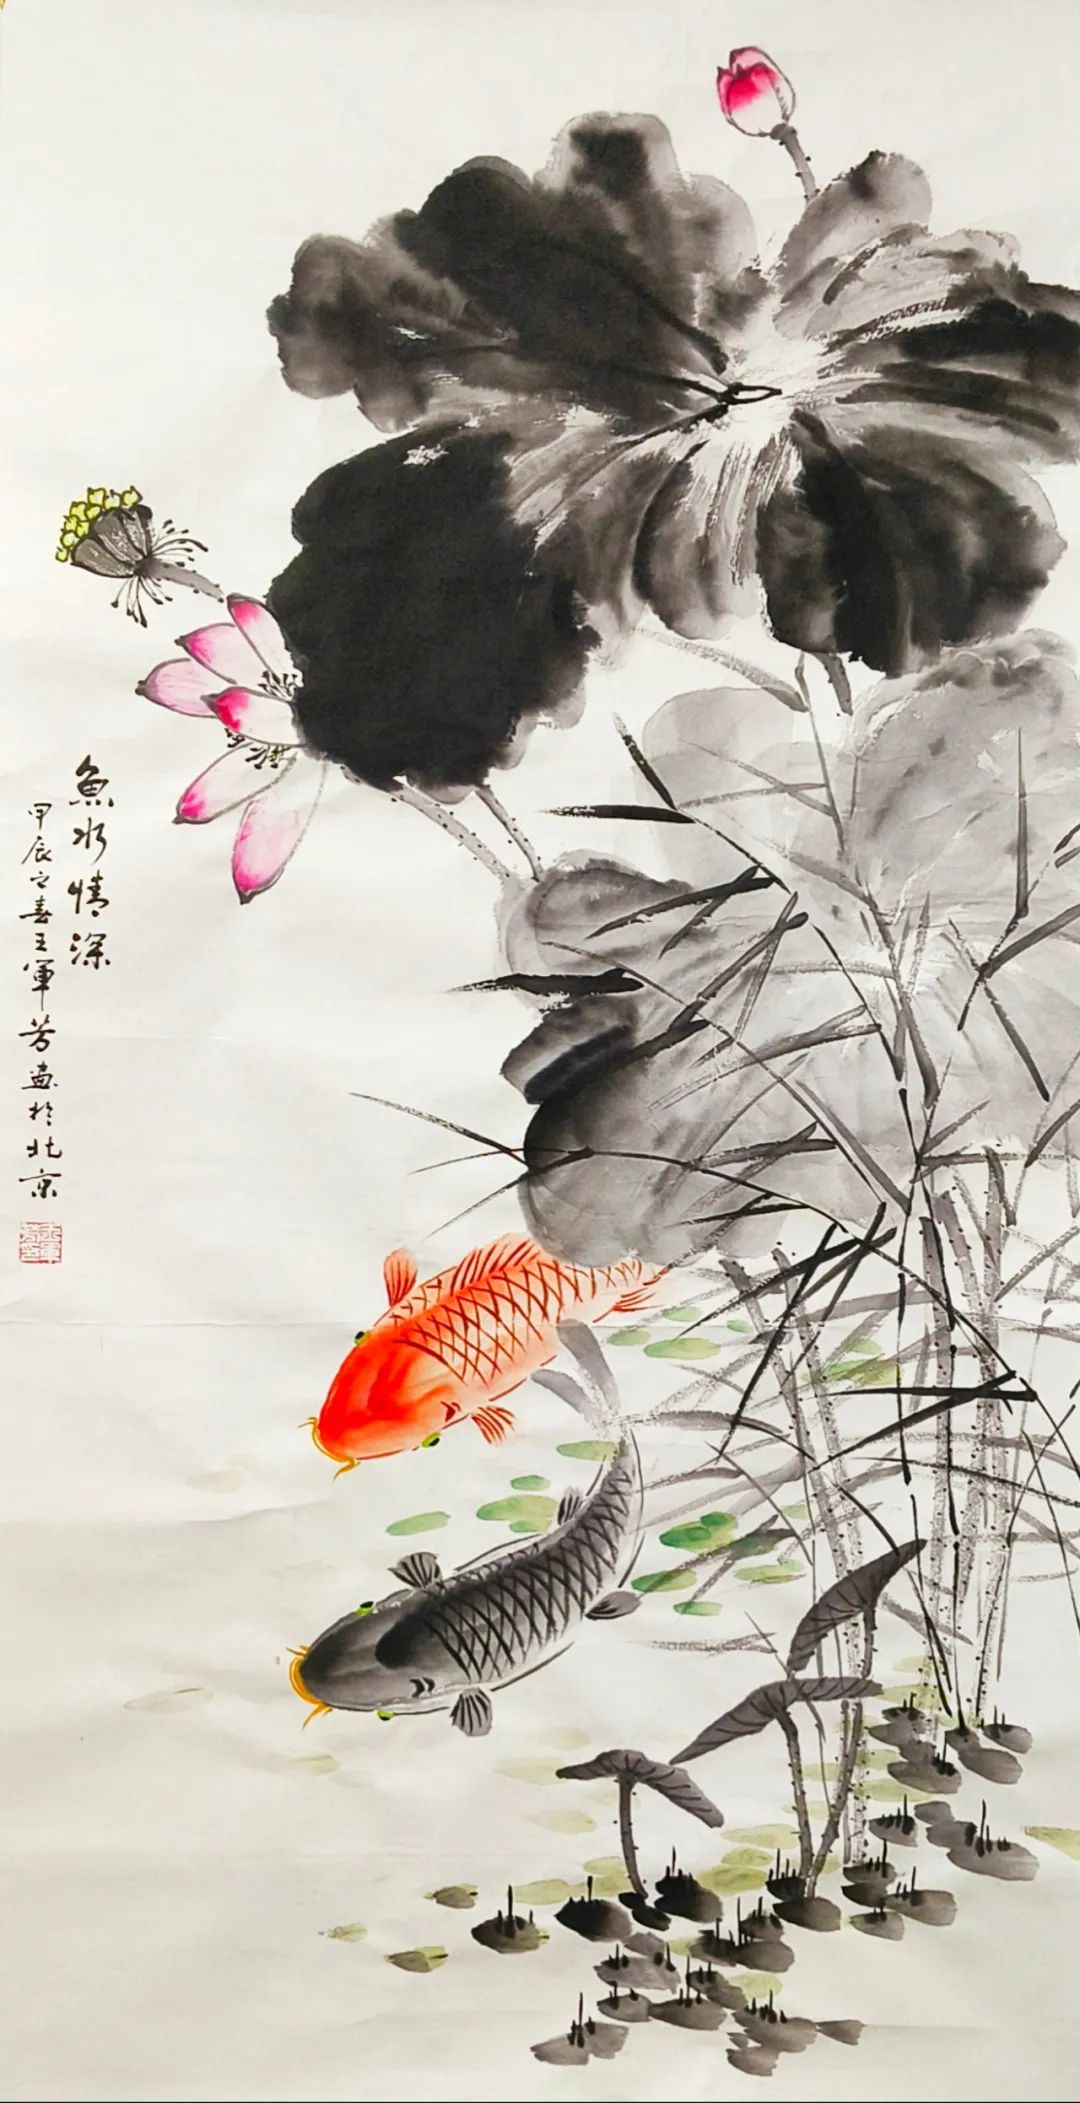 魚水情深
甲辰之春王軍芳畫於北京